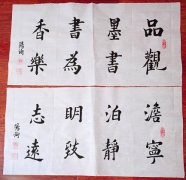 品觀
墨書
書為
香樂
澹寧
泊靜
明致
志遠